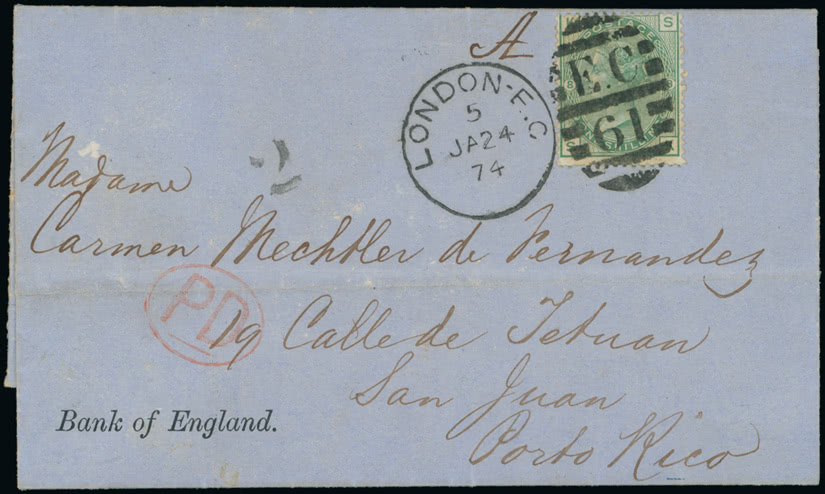 A
POSTAGE
S
E.C
61
LONDON-E.C
5
JA24
74
Madame
Carmen Mechtler de Fernandez
PD
19 Calle de Tetuan
San Juan
Porto Rico
Bank of England.